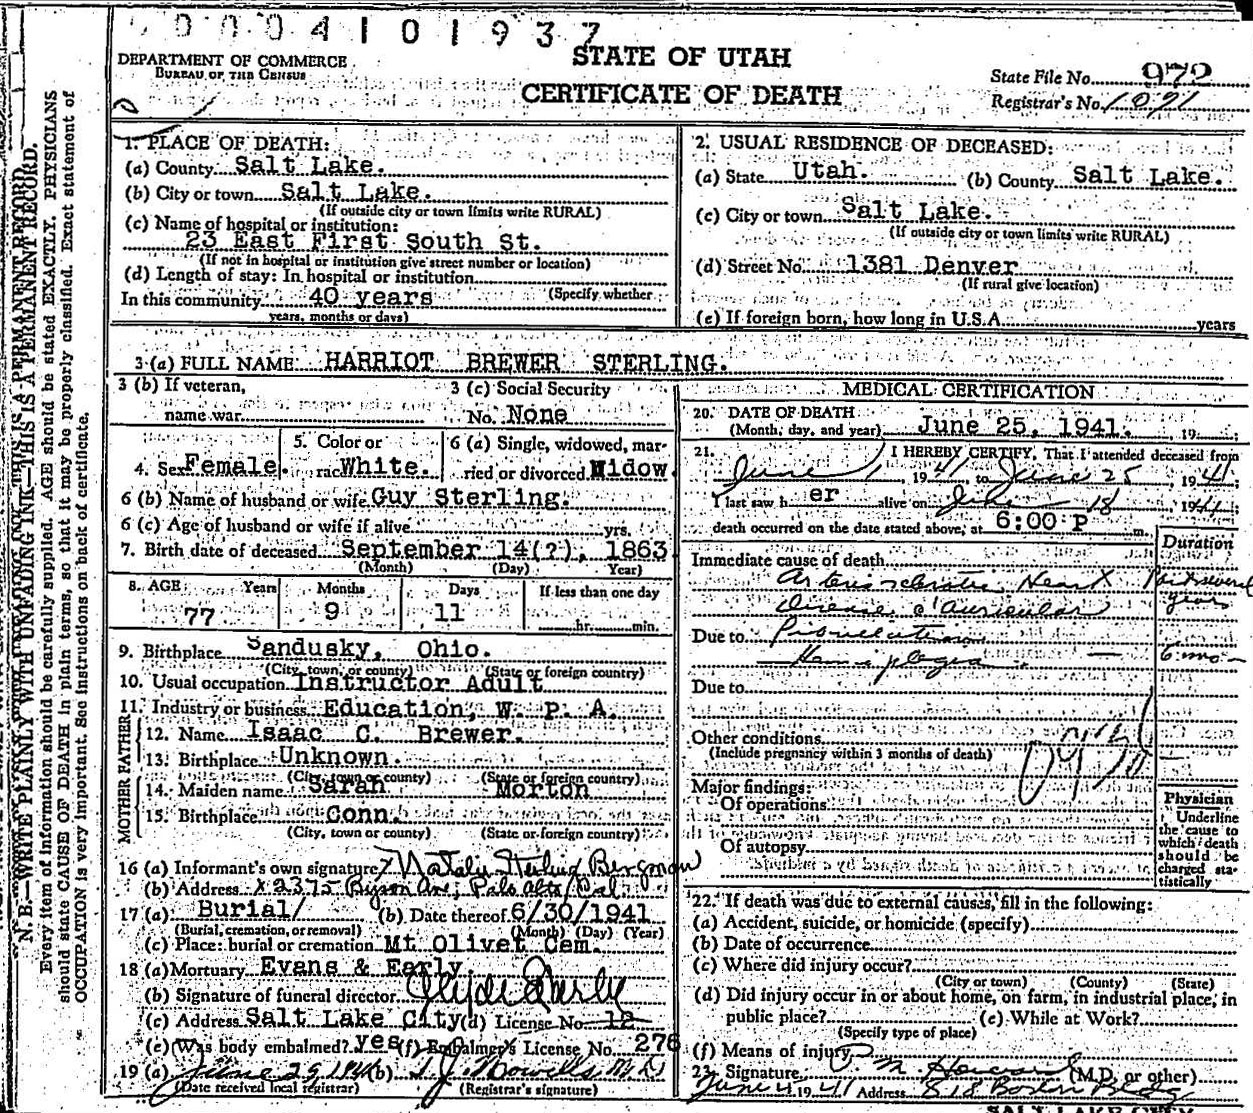 0004101937
STATE OF UTAH
DEPARTMENT OF COMMERCE
BUREAU OF THE CENSUS
CERTIFICATE OF DEATH
State File No. 972
Registrar's No. 1091
N. B.—WRITE PLAINLY WITH UNFADING INK—THIS IS A PERMANENT RECORD.
Every item of information should be carefully supplied. AGE should be stated EXACTLY. PHYSICIANS
should state CAUSE OF DEATH in plain terms, so that it may be properly classified. Exact statement of
OCCUPATION is very important. See instructions on back of certificate.
1. PLACE OF DEATH:
(a) County Salt Lake.
(b) City or town Salt Lake.
(If outside city or town limits write RURAL)
(c) Name of hospital or institution:
23 East First South St.
(If not in hospital or institution give street number or location)
(d) Length of stay: In hospital or institution
In this community 40 years (Specify whether
years, months or days)
2. USUAL RESIDENCE OF DECEASED:
(a) State Utah. (b) County Salt Lake.
(c) City or town Salt Lake.
(If outside city or town limits write RURAL)
(d) Street No. 1381 Denver
(If rural give location)
(e) If foreign born, how long in U.S.A. years
3 (a) FULL NAME HARRIOT BREWER STERLING.
3 (b) If veteran,
name war
3 (c) Social Security
No. None
4. Sex Female.
5. Color or
race White.
6 (a) Single, widowed, mar-
ried or divorced Widow.
6 (b) Name of husband or wife Guy Sterling.
6 (c) Age of husband or wife if alive yrs.
7. Birth date of deceased September 14(?), 1863
(Month) (Day) Year)
8. AGE Years Months Days If less than one day
77 9 11 hr. min.
9. Birthplace Sandusky, Ohio.
(City, town, or county) (State or foreign country)
10. Usual occupation Instructor Adult
11. Industry or business Education, W. P. A.
FATHER
12. Name Isaac C. Brewer.
13. Birthplace Unknown.
(City, town or county) (State or foreign country)
MOTHER
14. Maiden name Sarah Morton
15. Birthplace Conn.
(City, town or county) (State or foreign country)
16 (a) Informant's own signature x Natalie Sterling Bergman
(b) Address x 2375 Byron Ave; Palo Alto, Cal.
17 (a) Burial (b) Date thereof 6/30/1941
(Burial, cremation, or removal) (Month) (Day) (Year)
(c) Place: burial or cremation Mt Olivet Cem.
18 (a) Mortuary Evans & Early
(b) Signature of funeral director Clyde Early
(c) Address Salt Lake City (d) License No. 12
(e) Was body embalmed? yes (f) Embalmer's License No. 276
19 (a) June 29, 1941 (b) T. J. Howells, M.D.
(Date received local registrar) (Registrar's signature)
MEDICAL CERTIFICATION
20. DATE OF DEATH
(Month, day, and year) June 25, 1941. 19
21. I HEREBY CERTIFY, That I attended deceased from
June 1941 to June 25, 1941;
I last saw her alive on June 18, 1941;
death occurred on the date stated above, at 6:00 P m.
Duration
Immediate cause of death
Arteriosclerotic Heart
Disease & Auricular
years
Due to Fibrillation
Hemiplegia 6 mo
Due to
Other conditions
(Include pregnancy within 3 months of death)
Major findings:
Of operations
Of autopsy
Physician
Underline
the cause to
which death
should be
charged sta-
tistically
22. If death was due to external causes, fill in the following:
(a) Accident, suicide, or homicide (specify)
(b) Date of occurrence
(c) Where did injury occur?
(City or town) (County) (State)
(d) Did injury occur in or about home, on farm, in industrial place, in
public place? (e) While at Work?
(Specify type of place)
(f) Means of injury
23. Signature (M.D. or other)
June 1941 Address 818 Boston Bldg
SALT LAKE CITY